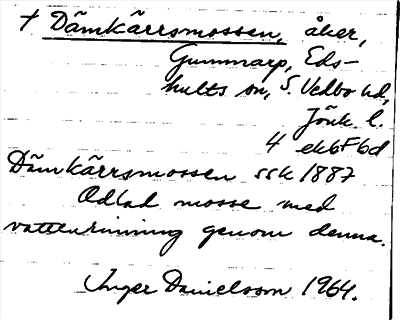 † Dämkärrsmossen, åker,
Gummarp, Eds-
hults sn, S. Vedbo hd,
Jönk. l.
4 ek6F6d
Dämkärrsmossen ssk 1887
Odlad mosse med
vattenrinning genom denna.
Inger Danielsson 1964.